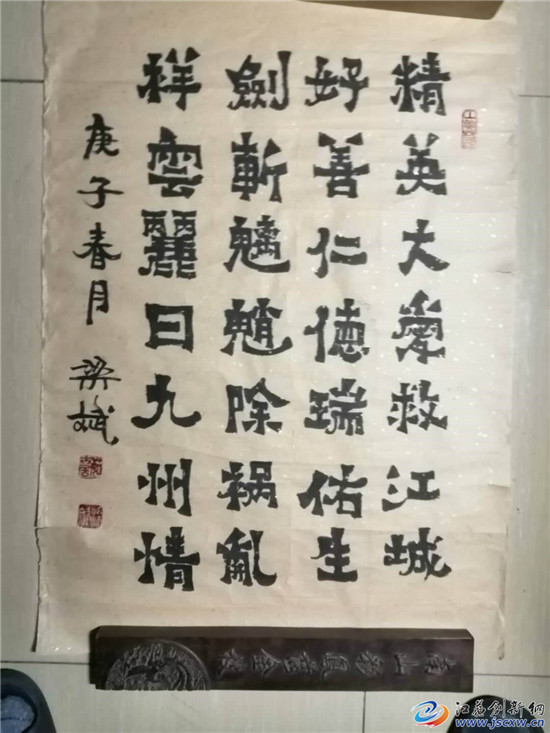 精英大愛救江城
好善仁德瑞佑生
劍斬魑魈除祸亂
祥雲麗日九州情
庚子春月 梁斌
江苏创新网
www.jscxw.cn